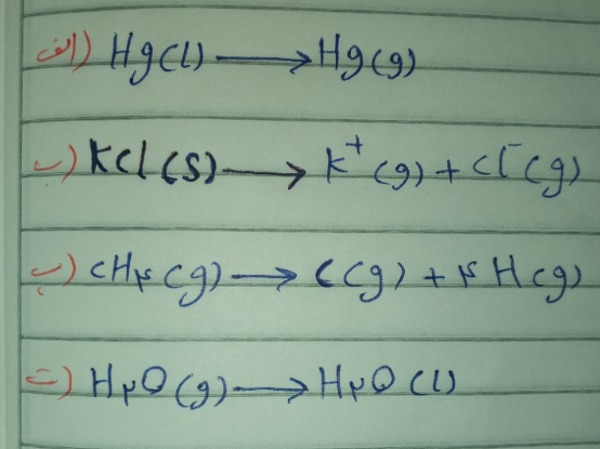 الف) Hg(l) ⟶ Hg(g)
ب) KCl(s) ⟶ K⁺(g) + Cl⁻(g)
پ) CH۴(g) ⟶ C(g) + ۴H(g)
ت) H۲O(g) ⟶ H۲O(l)